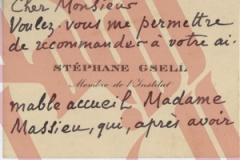 Cher Monsieur
Voulez-vous me permettre
de recommander à votre ai-
STÉPHANE GSELL
Membre de l'Institut
mable accueil Madame
Massieu, qui, après avoir